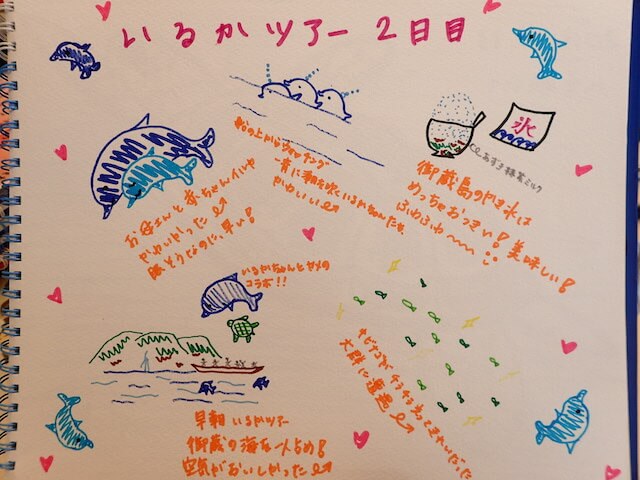 いるかツアー2日目
船の上からウォッチング
一斉に潮を吹くいるかちゃんたち、
かわいい
氷
あずき抹茶ミルク
御蔵島のかき氷は
めっちゃおっきい！美味しい！
ふわふわ〜〜〜
お母さんと赤ちゃんイルカ
かわいかった
豚そうなのに、早い！
いるかちゃんとカメの
コラボ！！
早朝いるかツアー
御蔵の海を一人占め！
空気がおいしかった
キビナゴがキラキラ光ってきれいだった
大群に遭遇